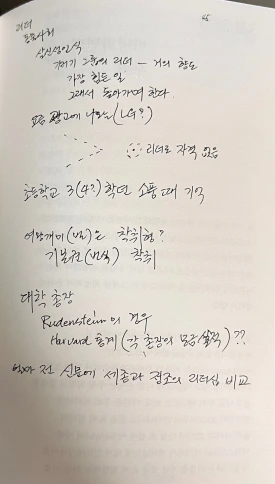 45
리더
문화사회
기러기 그룹의 리더 – 거의 항로
가장 힘든 일
그래서 돌아가며 한다.
요즘 광고에 나오는 (LG?)
리더로 자격 없음
초등학교 3(4?)학년 소풍 때 기억
여왕개미(벌)은 착취형?
기본권(번식) 착취
대학 총장
Rudenstein의 경우
Harvard 통계 (각 총장의 모금실적)??
전 신문에 세종과 정조의 리더십 비교